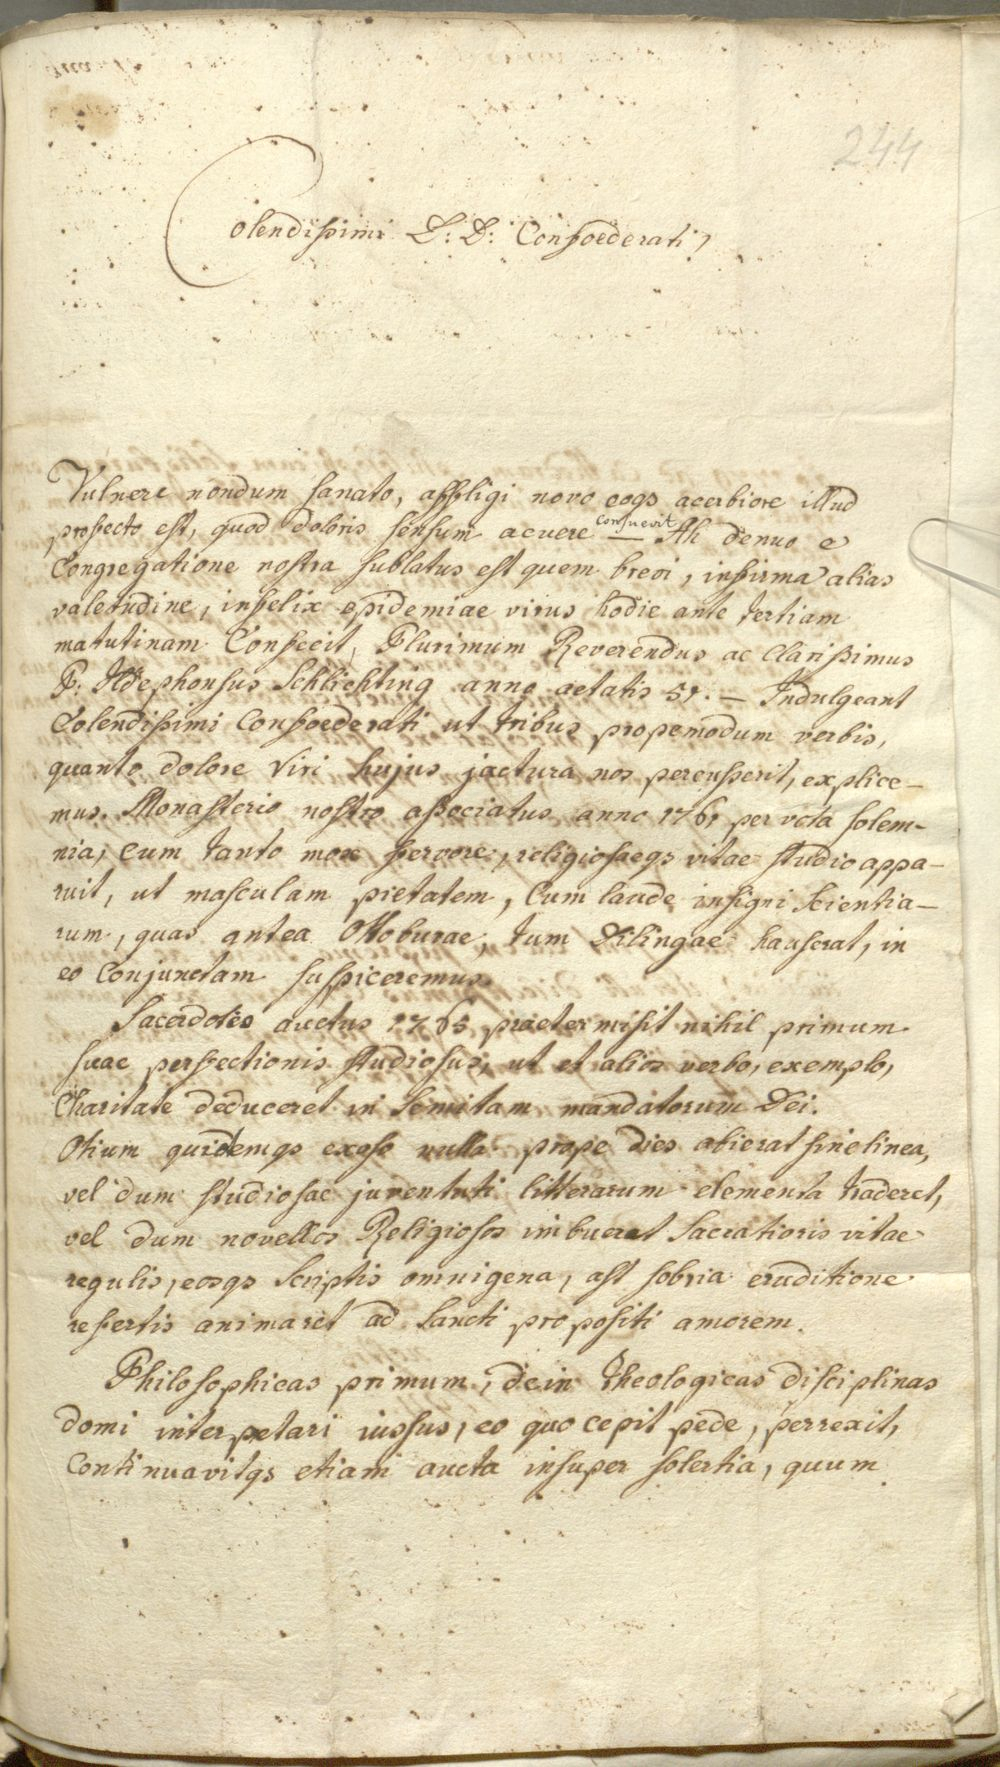 244
Colendissimi D: D: Confoederati,
Vulnere nondum sanato, affligi novo eoqs acerbiore illud
profecto est, quod doloris sensum acuere consuevit — Ah denuo e
Congregatione nostra sublatus est quem brevi, infirma alias
valetudine, infelix epidemiae virus hodie ante tertiam
matutinam Confecit, Plurimum Reverendus ac Clarissimus
P: Ildephonsus Schlichting anno aetatis 51. — Indulgeant
Colendissimi Confoederati ut tribus propemodum verbis,
quanto dolore Viri hujus jactura nos perculserit, explice-
mus. Monasterio nostro associatus anno 1761 per vota solem-
nia, cum tanto mox fervore, religiosaeqs vitae studio appa-
ruit, ut masculam pietatem, Cum laude insigni Scientia-
rum, quas antea Ottoburae, tum Dilingae hauserat, in
eo Conjunctam suspiceremus.
Sacerdotio auctus 1765 praetermisit nihil primum
suae perfectionis studiosus, ut et alios verbo, exemplo,
Charitate deduceret in Semitam mandatorum Dei.
Otium quidemqs exoso nulla prope dies abierat sine linea,
vel dum studiosae juventuti litterarum elementa traderet,
vel dum novellos Religiosos imbueret Sacratioris vitae
regulis, eosqs Scriptis omnigena, ast sobria eruditione
refertis animaret ad Sancti propositi amorem.
Philosophicas primum, dein theologicas disciplinas
domi interpretari iussus, eo quo cepit pede, perrexit,
Continuavitqs etiam aucta insuper solertia, quum